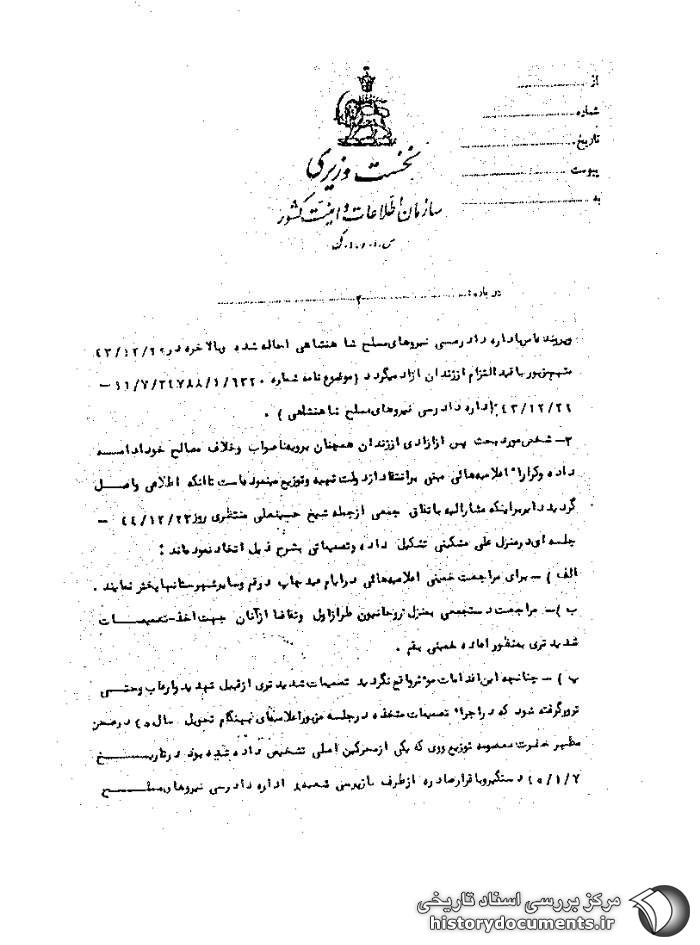 از
شماره
تاریخ
پیوست
به
نخست وزیری
سازمان اطلاعات و امنیت کشور
س.ا.و.ا.ک
درباره:
۲
اداره دادرسی نیروهای مسلح شاهنشاهی احاله شده وبالاخره در ۴۳/۱۲/۲۰
متهم مزبور با قید التزام از زندان آزاد میگردد (موضوع نامه شماره ۱۱/۷/۲۴۷۸۸/۱/۶۳۲۰ –
۴۳/۱۲/۲۶ اداره دادرسی نیروهای مسلح شاهنشاهی) .
۲– شخص مورد بحث پس از آزادی از زندان همچنان برویه ناصواب وخلاف مصالح خود ادامه
داده وکرارا" اعلامیه هائی مبنی بر انتقاد از دولت تهیه وتوزیع مینموده است تا اینکه اطلاعی واصل
گردید دایر براینکه مشارالیه باتفاق جمعی ازجمله شیخ حسینعلی منتظری روز ۴۴/۱۲/۲۳ –
جلسه ای در منزل علی مشکینی تشکیل داده وتصمیماتی بشرح ذیل اتخاذ نموده اند :
الف ) – برای مراجعت خمینی اعلامیه هائی در ایام عید چاپ و در قم وسایر شهرستانها پخش نمایند .
ب )– مراجعت دستجمعی بمنزل روحانیون طراز اول وتقاضا از آنان جهت اخذ تصمیمات
شدید تری بمنظور اعاده خمینی بقم .
پ ) – چنانچه این اقدامات موثر واقع نگردید تصمیمات شدید تری از قبیل تهدید وارعاب وحتی
ترور گرفته شود که در اجرا" تصمیمات متخذه در جلسه مزبور اعلامیه های بهنگام تحویل سال ۴۵ در صحن
مطهر حضرت معصومه توزیع ووی که یکی از محرکین اصلی تشخیص داده شده بود در تاریخ
۴۵/۱/۷ دستگیر وبا قرار صادره از طرف بازپرسی شعبه اداره دادرسی نیروهای مسلح
مرکز بررسی اسناد تاریخی
historydocuments.ir